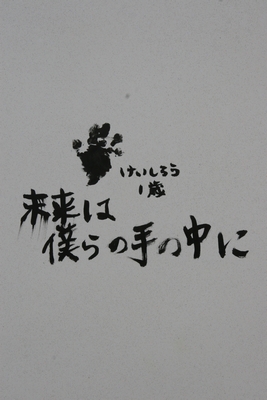 けいしろう
1歳
未来は
僕らの手の中に